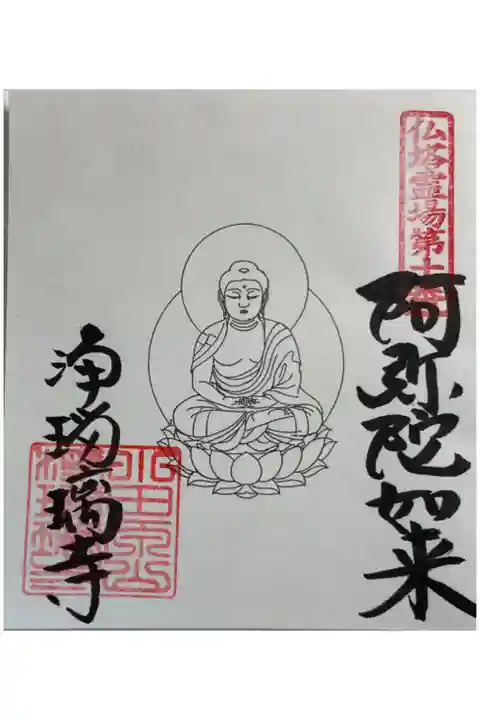 仏塔霊場第十番
阿弥陀如来
浄瑠璃寺